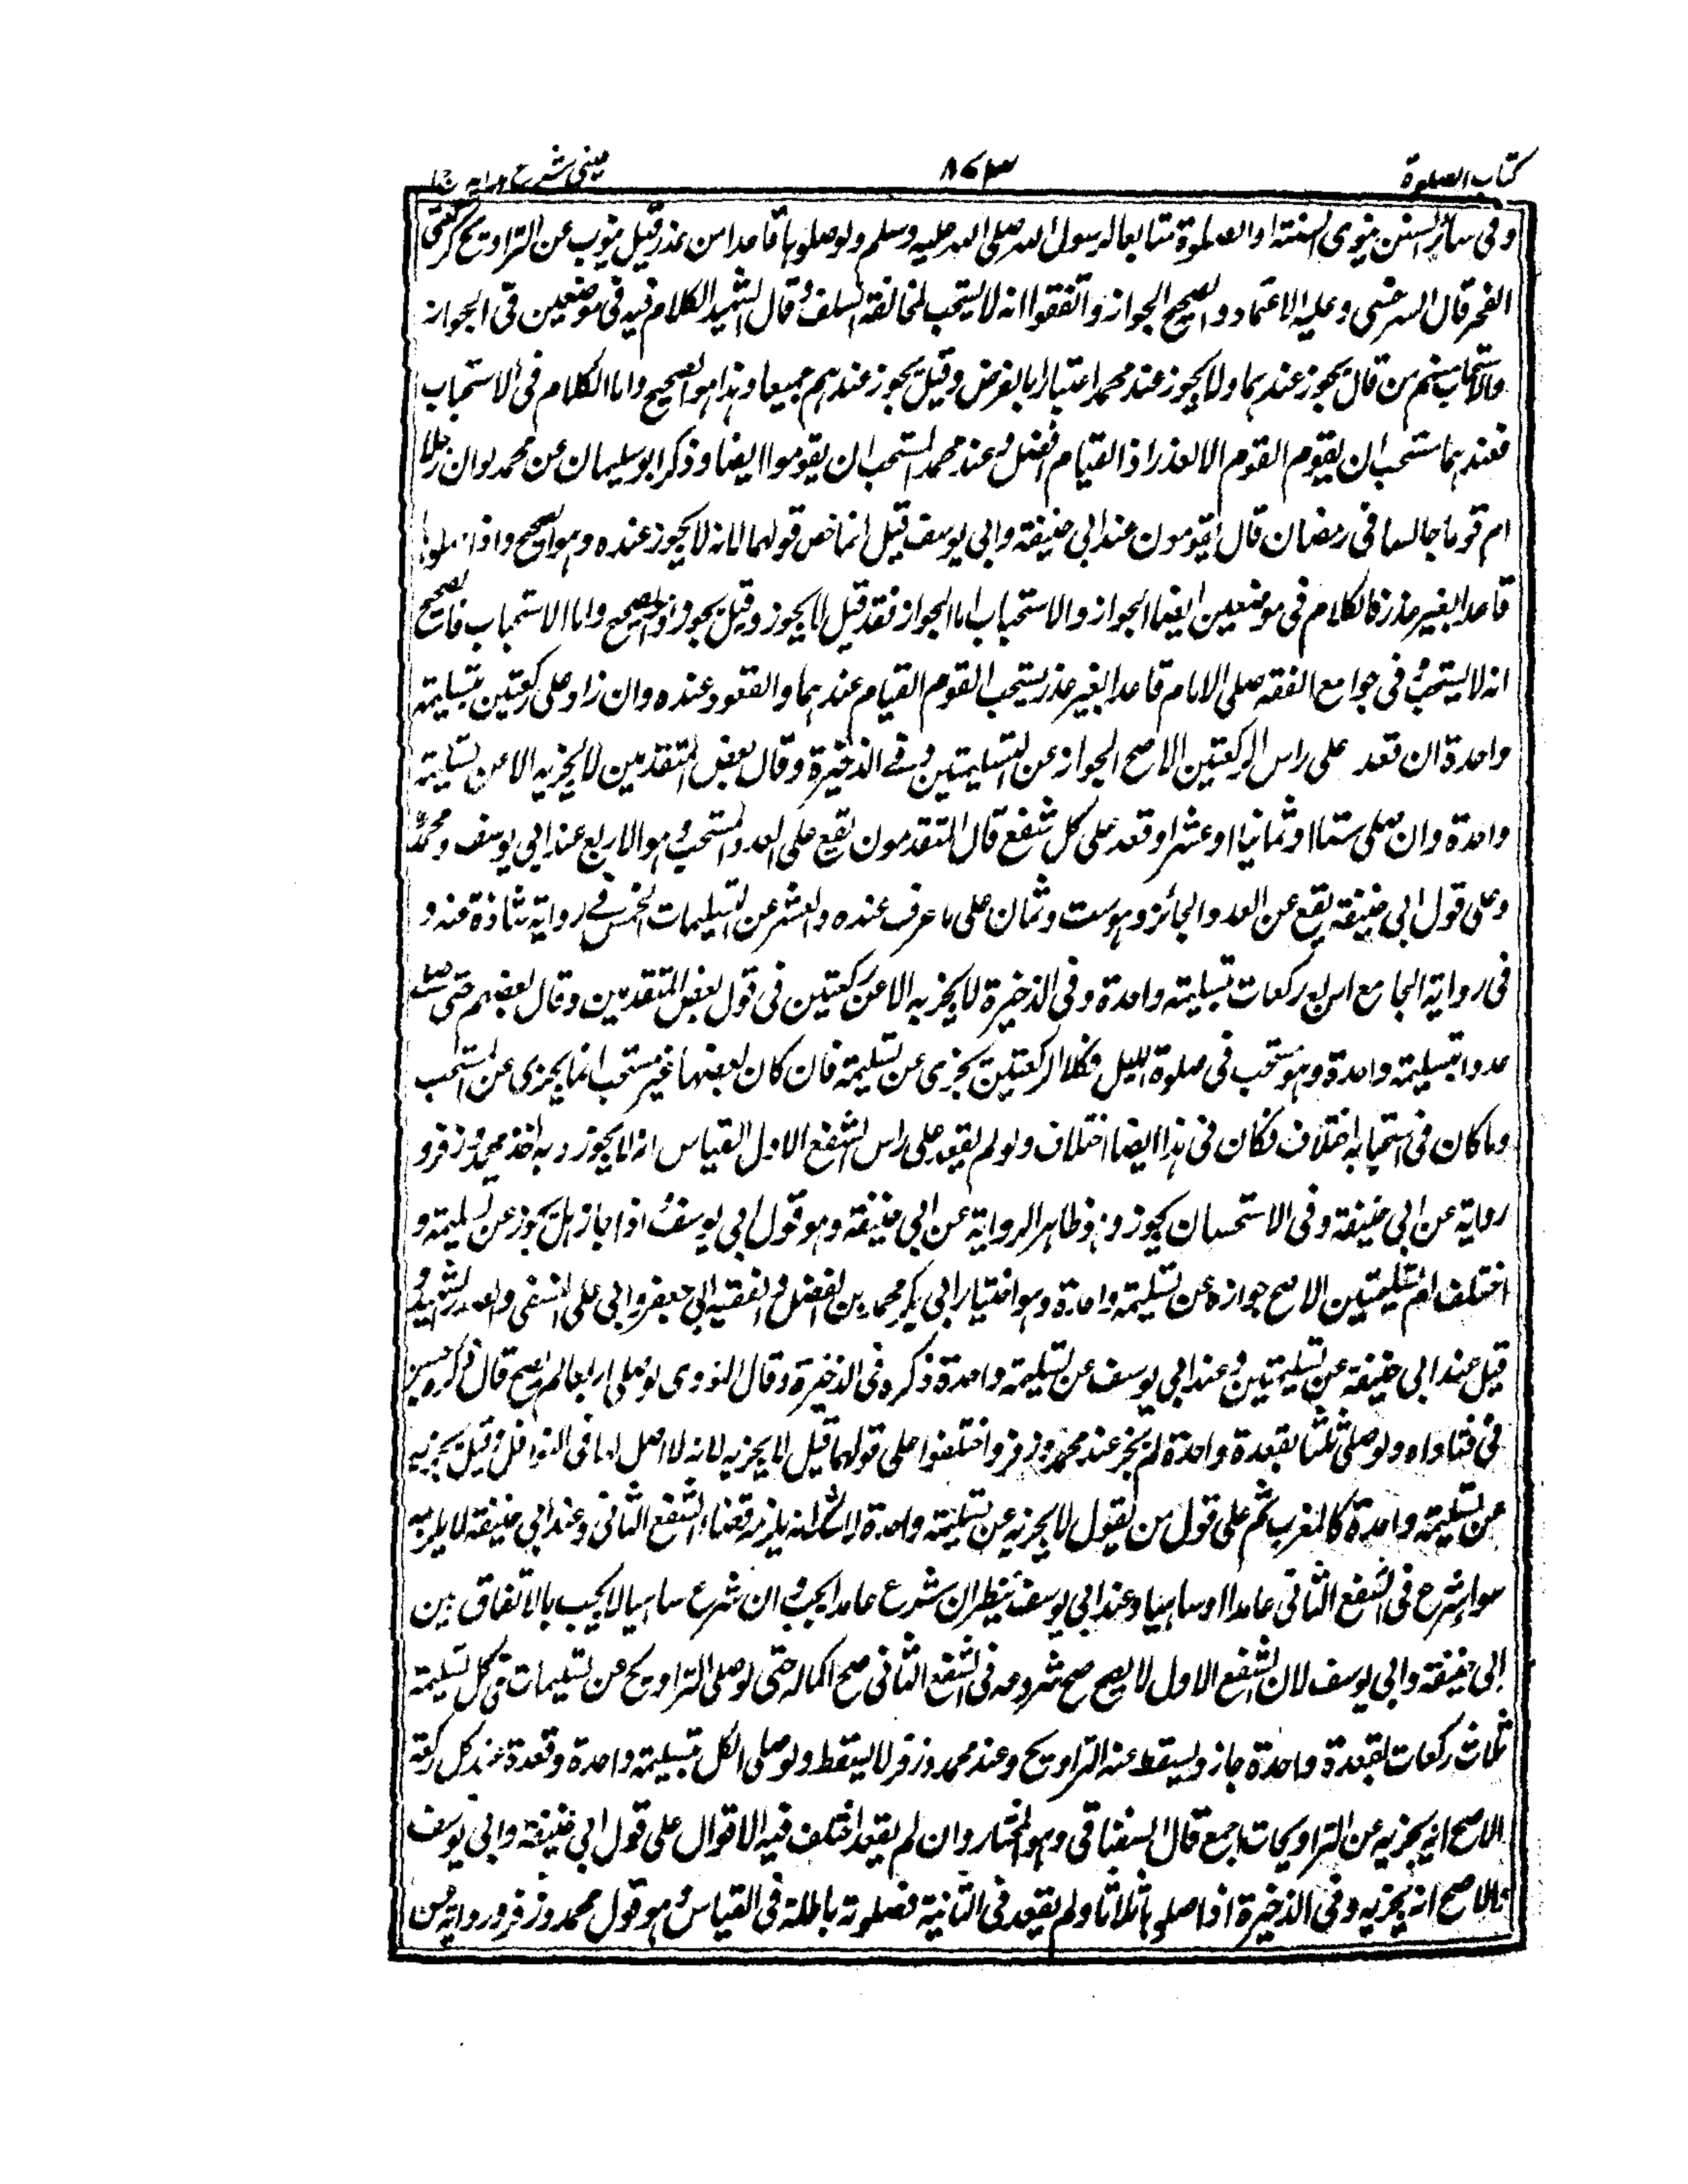 كتاب الصلوة ٨٤٣ عينى شرح هدايه ج١
وفى سائر السنن ينوى السنة او الصلوة متابعا لرسول الله صلى الله عليه وسلم ولو صلوها قاعدا من عذر قيل ينوب عن التراويح كركعتى
الفجر قال السرخسى وعليه الاعتماد والصحيح الجواز واتفقوا انه لا يستحب لمخالفة السلف وقال الشهيد الكلام فيه فى موضعين فى الجواز
والاستحباب منهم من قال يجوز عندهما ولا يجوز عند محمد اعتبارا بالفرض وقيل يجوز عندهم جميعا وهذا هو الصحيح واما الكلام فى الاستحباب
فعندهما مستحب ان يقوم القوم الا لعذر اذ القيام افضل وعند محمد المستحب ان يقوموا ايضا وذكر ابو سليمان عن محمد لو ان رجلا
ام قوما جالسا فى رمضان قال يقومون عند ابى حنيفة وابى يوسف قيل انما خص قولهما لانه لا يجوز عنده وهو الصحيح واذا صلوها
قاعدا بغير عذر فالكلام فى موضعين ايضا الجواز والاستحباب اما الجواز فقد قيل لا يجوز وقيل يجوز وهو الصحيح واما الاستحباب فالصحيح
انه لا يستحب وفى جوامع الفقه صلى الامام قاعدا بغير عذر يستحب القوم القيام عندهما والقعود عنده وان زاد على ركعتين بتسليمة
واحدة ان قعد على راس الركعتين الاصح الجواز عن التسليمتين وفى الذخيرة وقال بعض المتقدمين لا يجزيه الا عن تسليمة
واحدة وان صلى ستا او ثمانيا او عشرا وقعد على كل شفع قال المتقدمون يقع على العدد المستحب وهو الاربع عند ابى يوسف ومحمد
وعلى قول ابى حنيفة يقع عن العدد الجائز وهو ست وثمان على ما عرف عنده والعشر عن التسليمات الخمس فى رواية شاذة عنه و
فى رواية الجامع اربع ركعات بتسليمة واحدة وفى الذخيرة لا يجزيه الا عن ركعتين فى قول بعض المتقدمين وقال بعضهم متى صلى
عددا بتسليمة واحدة وهو مستحب فى صلوة الليل فكلا الركعتين يجزى عن تسليمة فان كان بعضها غير مستحب انما يجزى عن المستحب
وما كان فى استحبابه اختلاف فكان فى هذا ايضا اختلاف ولو لم يقعد على راس الشفع الاول القياس انه لا يجوز وبه اخذ محمد وزفر و
رواية عن ابى حنيفة وفى الاستحسان يجوز وهو ظاهر الرواية عن ابى حنيفة وهو قول ابى يوسف اذا جاز هل يجوز عن تسليمة و
اختلف ام تسليمتين الاصح جوازه عن تسليمة واحدة وهو اختيار ابى بكر محمد بن الفضل والفقيه ابى جعفر وابى على النسفى والصدر الشهيد و
قيل عند ابى حنيفة عن تسليمتين وعند ابى يوسف عن تسليمة واحدة ذكره فى الذخيرة وقال النووى لو صلى اربعا لم يصح قال ذكره حسين
فى فتاواه ولو صلى ثلثا بقعدة واحدة لم يجز عند محمد وزفر واختلفوا على قولهما قيل لا يجزيه لانه لا اصل لها فى النوافل وقيل يجزيه
عن تسليمة واحدة كالمغرب ثم على قول من يقول لا يجزيه عن تسليمة واحدة لا شك انه يلزمه قضاء الشفع الثانى وعند ابى حنيفة لا يلزمه
سواء شرع فى الشفع الثانى عامدا او ساهيا وعند ابى يوسف ينظر ان شرع عامدا يجب وان شرع ساهيا لا يجب بالاتفاق بين
ابى حنيفة وابى يوسف لان الشفع الاول لا يصح صح شروعه فى الشفع الثانى صح اكماله حتى لو صلى التراويح عن تسليمات فى كل تسليمة
ثلاث ركعات بقعدة واحدة جاز ويسقط عنه التراويح وعند محمد وزفر لا يسقط ولو صلى الكل بتسليمة واحدة وقعدة عند كل ركعة
الاصح انه يجزيه عن الترويحات اجمع قال السغناقى وهو المختار وان لم يقعد اختلف فيه الاقوال على قول ابى حنيفة وابى يوسف
فالاصح انه يجزيه وفى الذخيرة اذا صلوها ثلاثا ولم يقعد فى الثانية فصلوته باطلة فى القياس وهو قول محمد وزفر ورواية عن